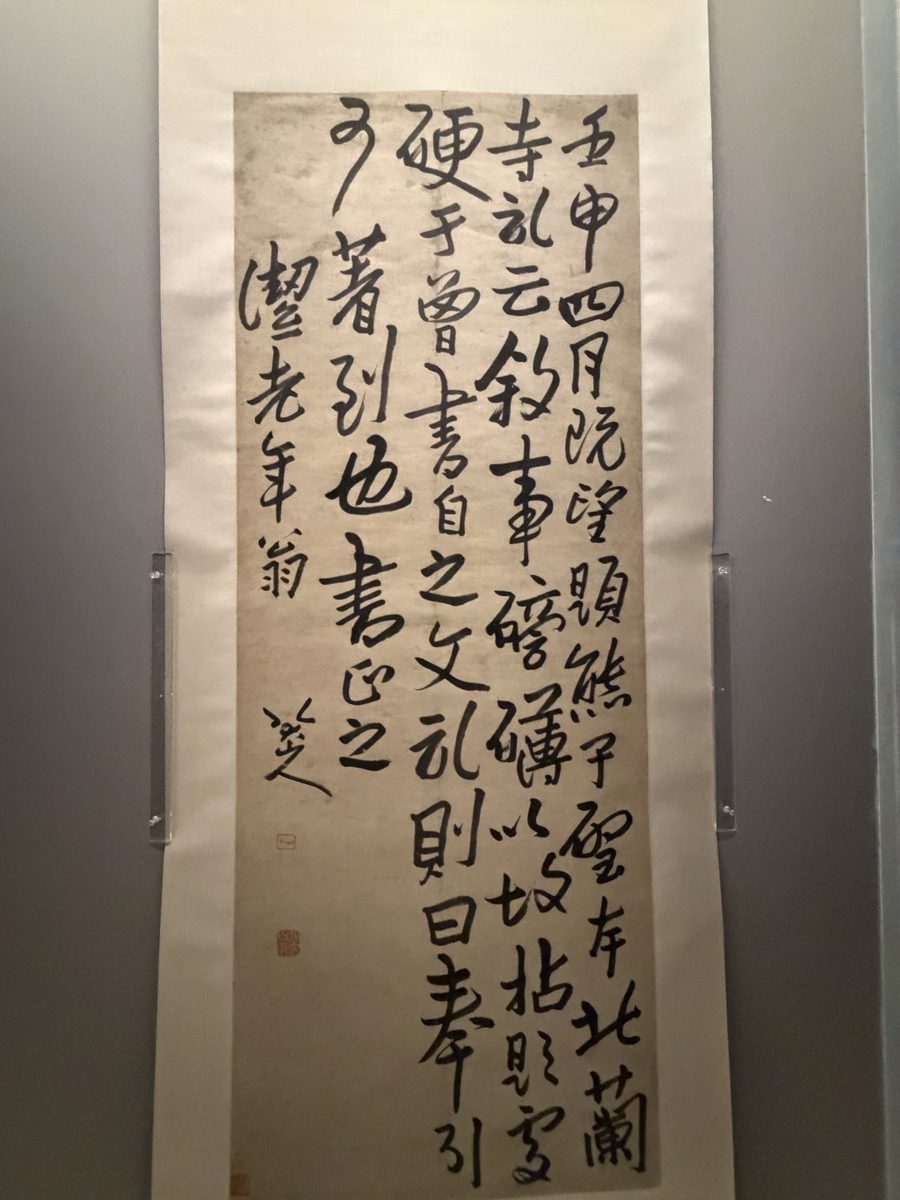 壬申四月既望題熊子壐本北蘭
寺記云敘事磅礴以故拈題處
硬于曾書自之文記則曰奉引
為著到也書正之
潔老年翁
八大山人